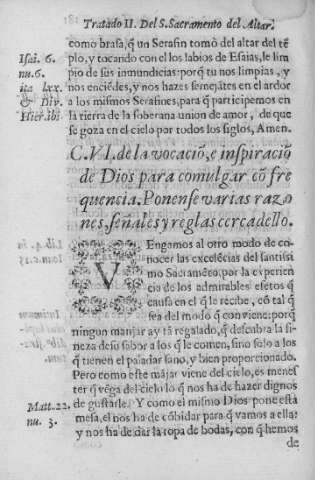 Tratado II. Del S. Sacramento del Altar.
como brasa, q̃ un Serafin tomò del altar del tẽ
Isai. 6.
plo, y tocando con el los labios de Esaias, le lim
nu. 6.
pio de sus inmundicias: porq̃ tu nos limpias, y
ita lxx.
nos enciẽdes, y nos hazes semejãtes en el ardor
& Div.
a los mismos Serafines, para q̃ participemos en
Hier. ibi
la tierra de la soberana union de amor, de que
se goza en el cielo por todos los siglos, Amen.
C. VI. de la vocaciõ, e inspiraciõ
de Dios para comulgar cõ fre
quencia. Ponense varias razo
nes, señales y reglas cerca dello.
VEngamos al otro modo de co-
nocer las excelẽcias del santissi
mo Sacramẽto: por la experien
cia de los admirables efetos q̃
causa en el q̃ le recibe, cõ tal q̃
sea del modo q̃ conviene: porq̃
ningun manjar ay tã regalado, q̃ descubra la fi-
neza de su sabor a los q̃ le comen, sino solo a los
q̃ tienen el paladar sano, y bien proporcionado.
Pero como este mãjar viene del cielo, es menes
ter q̃ vẽga del cielo lo q̃ nos ha de hazer dignos
Matt. 22.
de gustarle. Y como el mismo Dios pone esta
nu. 3.
mesa, el nos ha de cõbidar para q̃ vamos a ella:
y nos ha de dar la ropa de bodas, con q̃ hemos
de